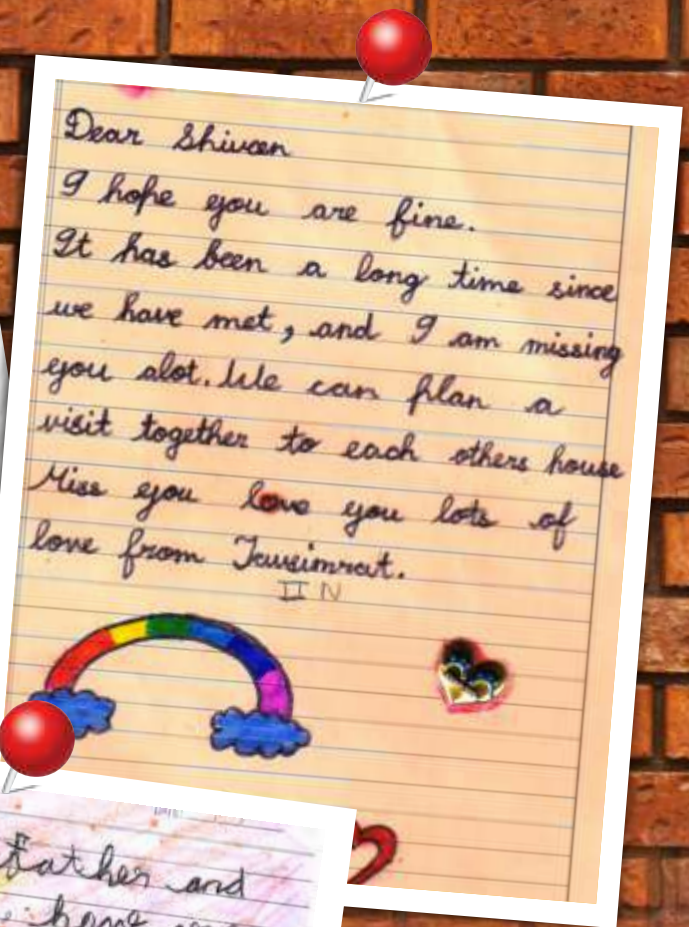 Dear Shivaen
I hope you are fine.
It has been a long time since
we have met, and I am missing
you alot. We can plan a
visit together to each others house
Miss you love you lots of
love from Jawsimrat.
II N
father and